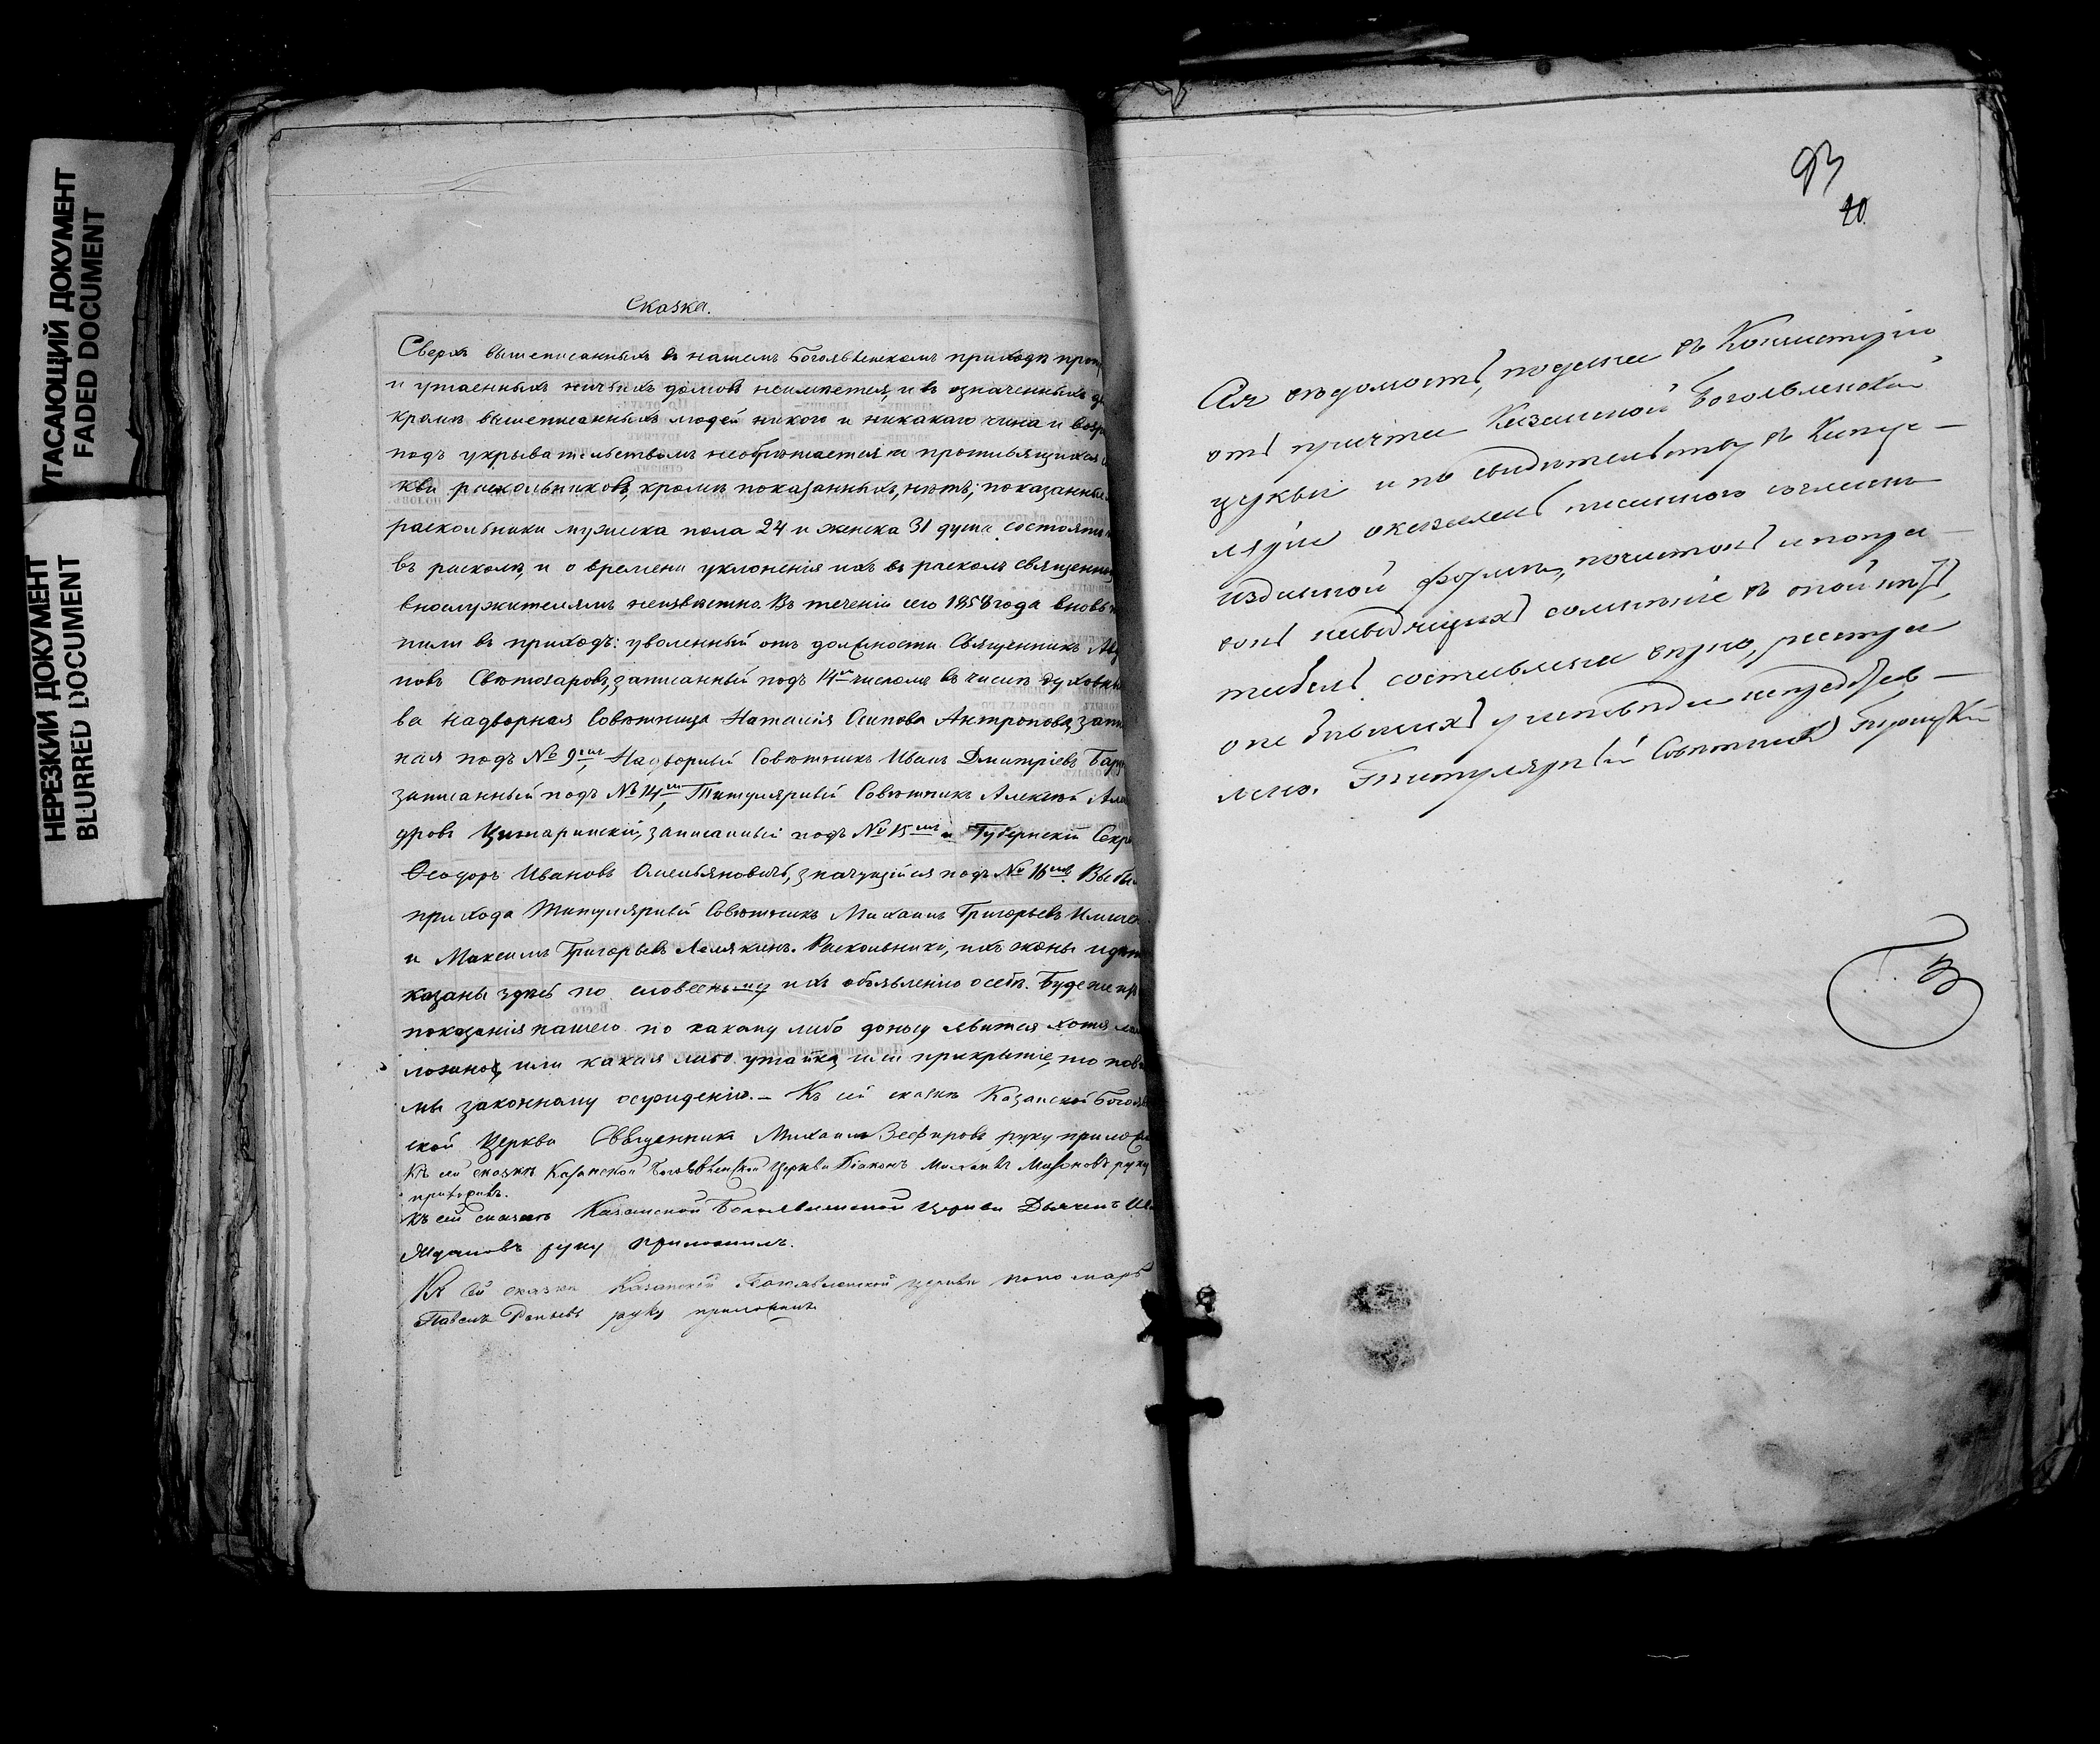 УГАСАЮЩИЙ ДОКУМЕНТ
FADED DOCUMENT
НЕРЕЗКИЙ ДОКУМЕНТ
BLURRED DOCUMENT
Сказка.
Сверхъ вышеписанныхъ въ нашемъ Богоявленскомъ приходѣ
и утаенныхъ ничьихъ домовъ неимѣется, и въ означенныхъ
кромѣ вышеписанныхъ людей никого и никакаго чина и
подъ укрывательствомъ необрѣтается и противящихся
кви раскольниковъ, кромѣ показанныхъ, нѣтъ; показанные
раскольники мужеска пола 24 и женска 31 душа состоятъ
въ расколѣ, и о времени уклоненія ихъ въ расколъ священно
внослужителямъ неизвѣстно. Въ теченіи сего 1858 года вновь
пили въ приходъ: уволенный отъ должности Священникъ
повъ Свѣтозаровъ, записанный подъ 14мъ числомъ въ числѣ духовныхъ
ва надворная Совѣтница Наталія Осипова Антропова,
ная подъ № 9мъ, Надворный Совѣтникъ Иванъ Дмитріевъ
записанный подъ № 14мъ, Титулярный Совѣтникъ Алексѣй
дровъ записанный подъ № 15мъ и Губернскій
Ѳеодоръ Ивановъ Омельяновичъ, значущійся подъ № 16мъ.
прихода Титулярный Совѣтникъ Михаилъ Григорьевъ
и Максимъ Григорьевъ Лелякинъ. Раскольники, ихъ жоны
казаны здѣсь по словесному ихъ объявленію о себѣ. Буде же
показанія нашего по какому либо доносу явится хотя
ложное, или какая либо утайка, или прикрытіе, то
мы законному осужденію. – Къ сей сказкѣ Казанской
ской Церкви Священникъ Михаилъ Зефировъ руку
Къ сей сказкѣ Казанской Богоявленской Церкви Діаконъ руку
приложилъ.
Къ сей сказкѣ Казанской Богоявленской Церкви Дьячекъ
Ждановъ руку приложилъ.
Къ сей сказкѣ Казанской Богоявленской церкви пономарь
Павелъ руку приложилъ
93
20.
Сія вѣдомость, подана въ Консисторію
отъ причта Казанской Богоявленской
церкви и по свидѣтельству въ Канце–
ляріи оказалась писанною согласно
изданной формѣ, почистокъ и попра–
вокъ наводящихъ сомнѣніе въ оной нѣтъ,
табель составлена вѣрно,
Титулярный Совѣтникъ